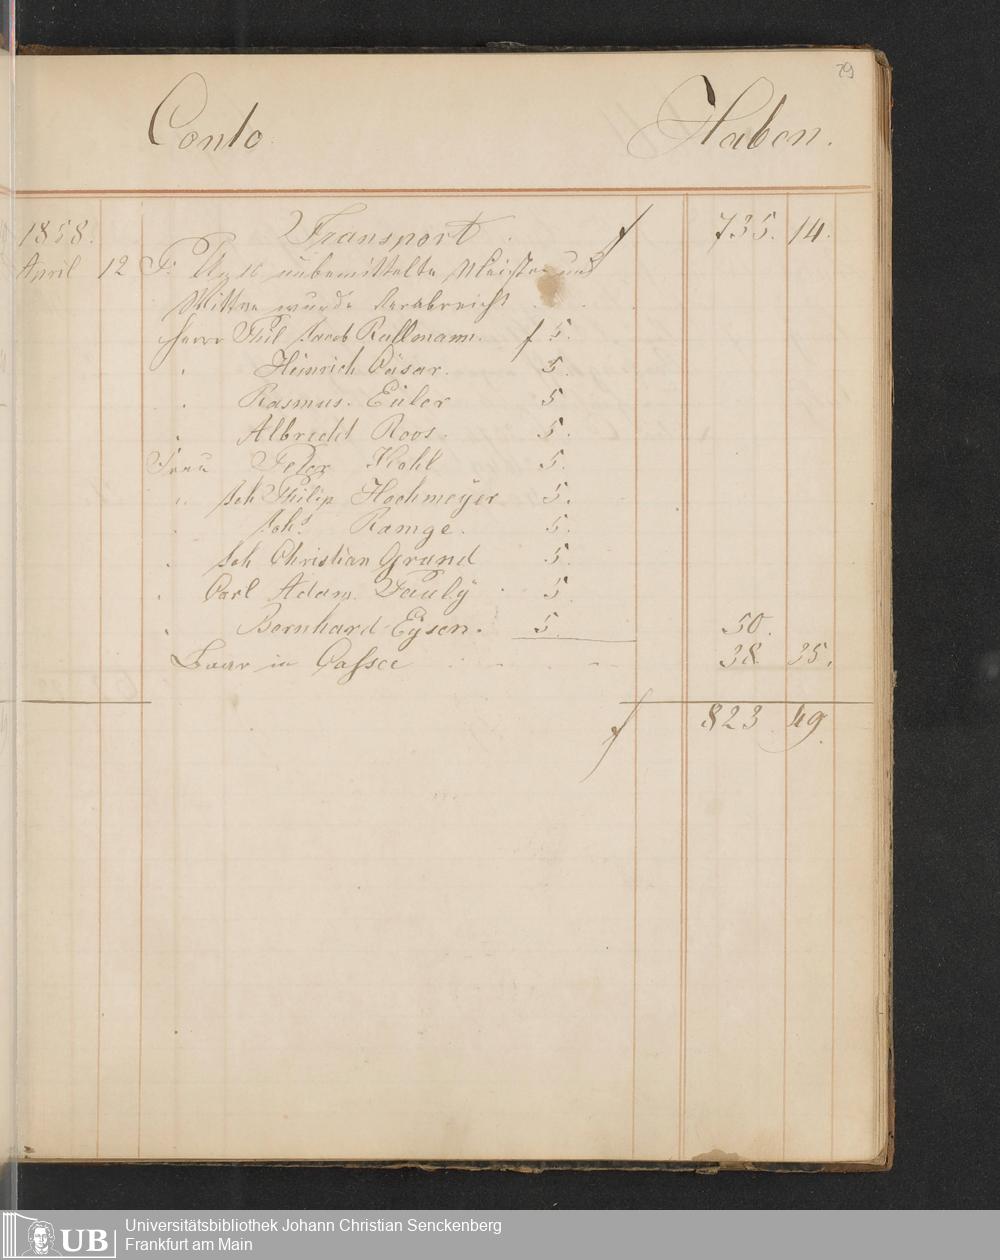 79
Conto Haben.
1858. Transport f 735. 14.
April 12 unbemittelte Meister und
Wittwe wurde verabreicht
Herrn Phil Jacob Rullmann. f 5.
" Heinrich Cäsar. 5.
" Rasmus. Euler 5
" Albrecht Roos. 5.
Frau Peter Kohl 5.
" Joh Philip Hochmeÿer 5.
" Johs Ramge. 5.
" Joh Christian Grund 5.
" Carl Adam Paulÿ 5
" Bernhard Eÿsen. 5. 50.
Baar in Casse 38. 35.
f 823. 49.
UB Universitätsbibliothek Johann Christian Senckenberg
Frankfurt am Main